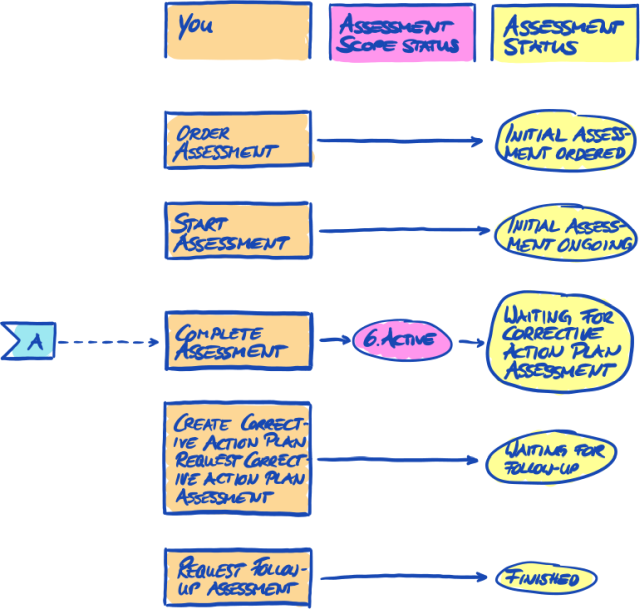 YOU
ASSESSMENT
SCOPE STATUS
ASSESSMENT
STATUS
ORDER
ASSESSMENT
INITIAL ASSESS-
MENT ORDERED
START
ASSESSMENT
INITIAL ASSESS-
MENT ONGOING
A
COMPLETE
ASSESSMENT
6. ACTIVE
WAITING FOR
CORRECTIVE
ACTION PLAN
ASSESSMENT
CREATE CORRECT-
IVE ACTION PLAN
REQUEST CORREC-
IVE ACTION PLAN
ASSESSMENT
WAITING FOR
FOLLOW-UP
REQUEST FOLLOW-
UP ASSESSMENT
FINISHED